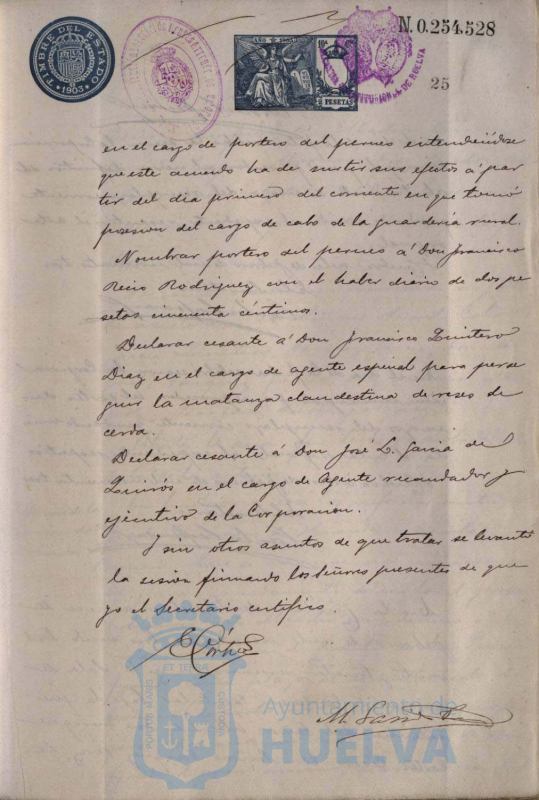 TIMBRE DEL ESTADO
1903
N. 0.254.528
PESETA
DE HUELVA
25
en el cargo de portero del perneo entendiendose
que este acuerdo ha de surtir sus efectos á par
tir del dia primero del corriente en que tomó
posesion del cargo de cabo de la guardería rural.
Nombrar portero del perneo á Don Francisco
Recio Rodriguez con el haber diario de dos pe
setas cincuenta céntimos.
Declarar cesante á Don Francisco Quintero
Diaz en el cargo de agente especial para perse
guir la matanza clandestina de reses de
cerda.
Declarar cesante á Don José L. Garcia de
Quirós en el cargo de Agente recaudador y
ejecutivo de la Corporacion.
Y sin otros asuntos de que tratar se levantó
la sesion firmando los Señores presentes de que
yo el Secretario certifico.
Ayuntamiento de
HUELVA
PORTUS MARIS
ET TERRE
CUSTODIA